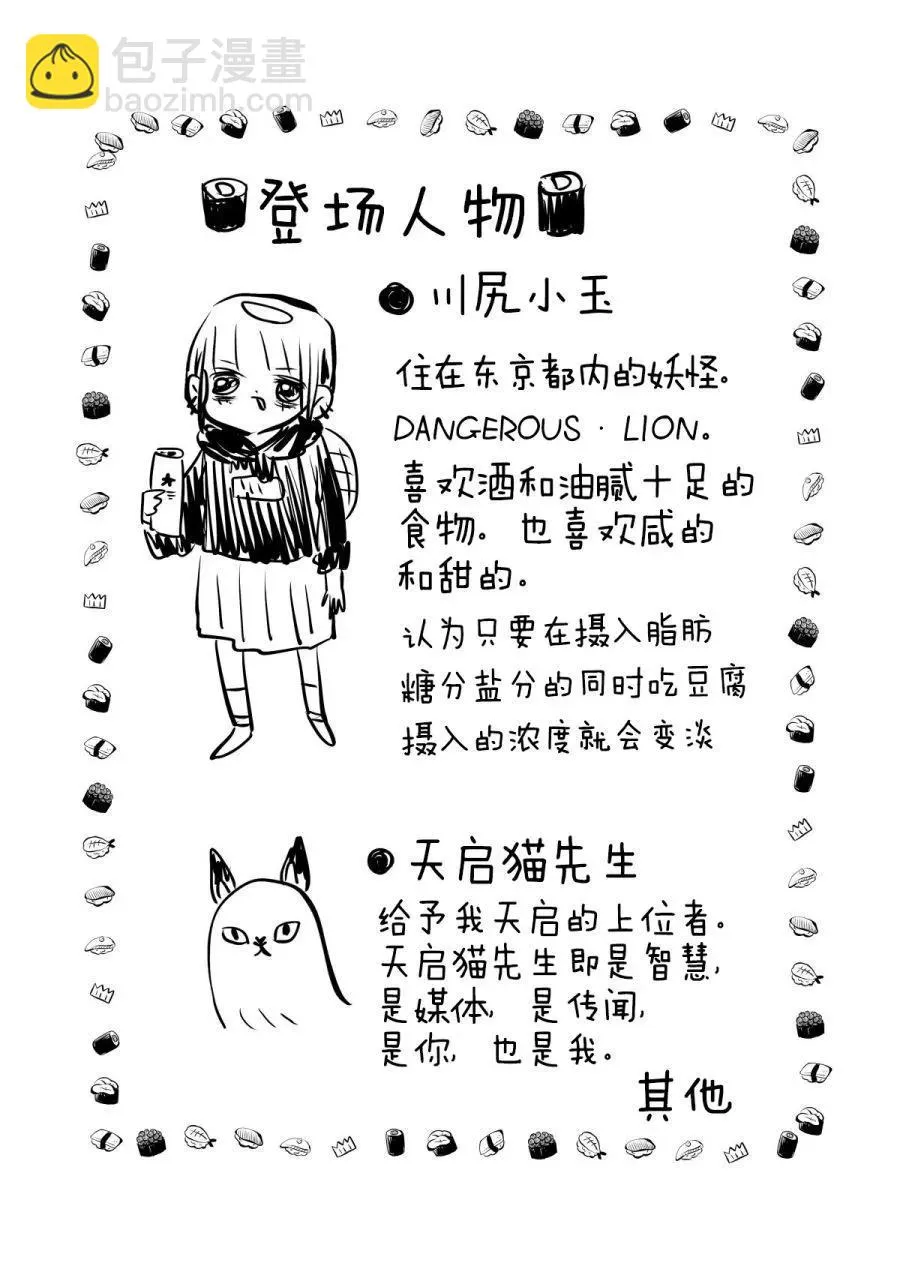 包子漫畫
baozimh.com
登场人物
川尻小玉
住在东京都内的妖怪。
DANGEROUS · LION。
喜欢酒和油腻十足的
食物。也喜欢咸的
和甜的。
认为只要在摄入脂肪
糖分盐分的同时吃豆腐
摄入的浓度就会变淡
天启猫先生
给予我天启的上位者。
天启猫先生即是智慧,
是媒体, 是传闻,
是你, 也是我。
其他